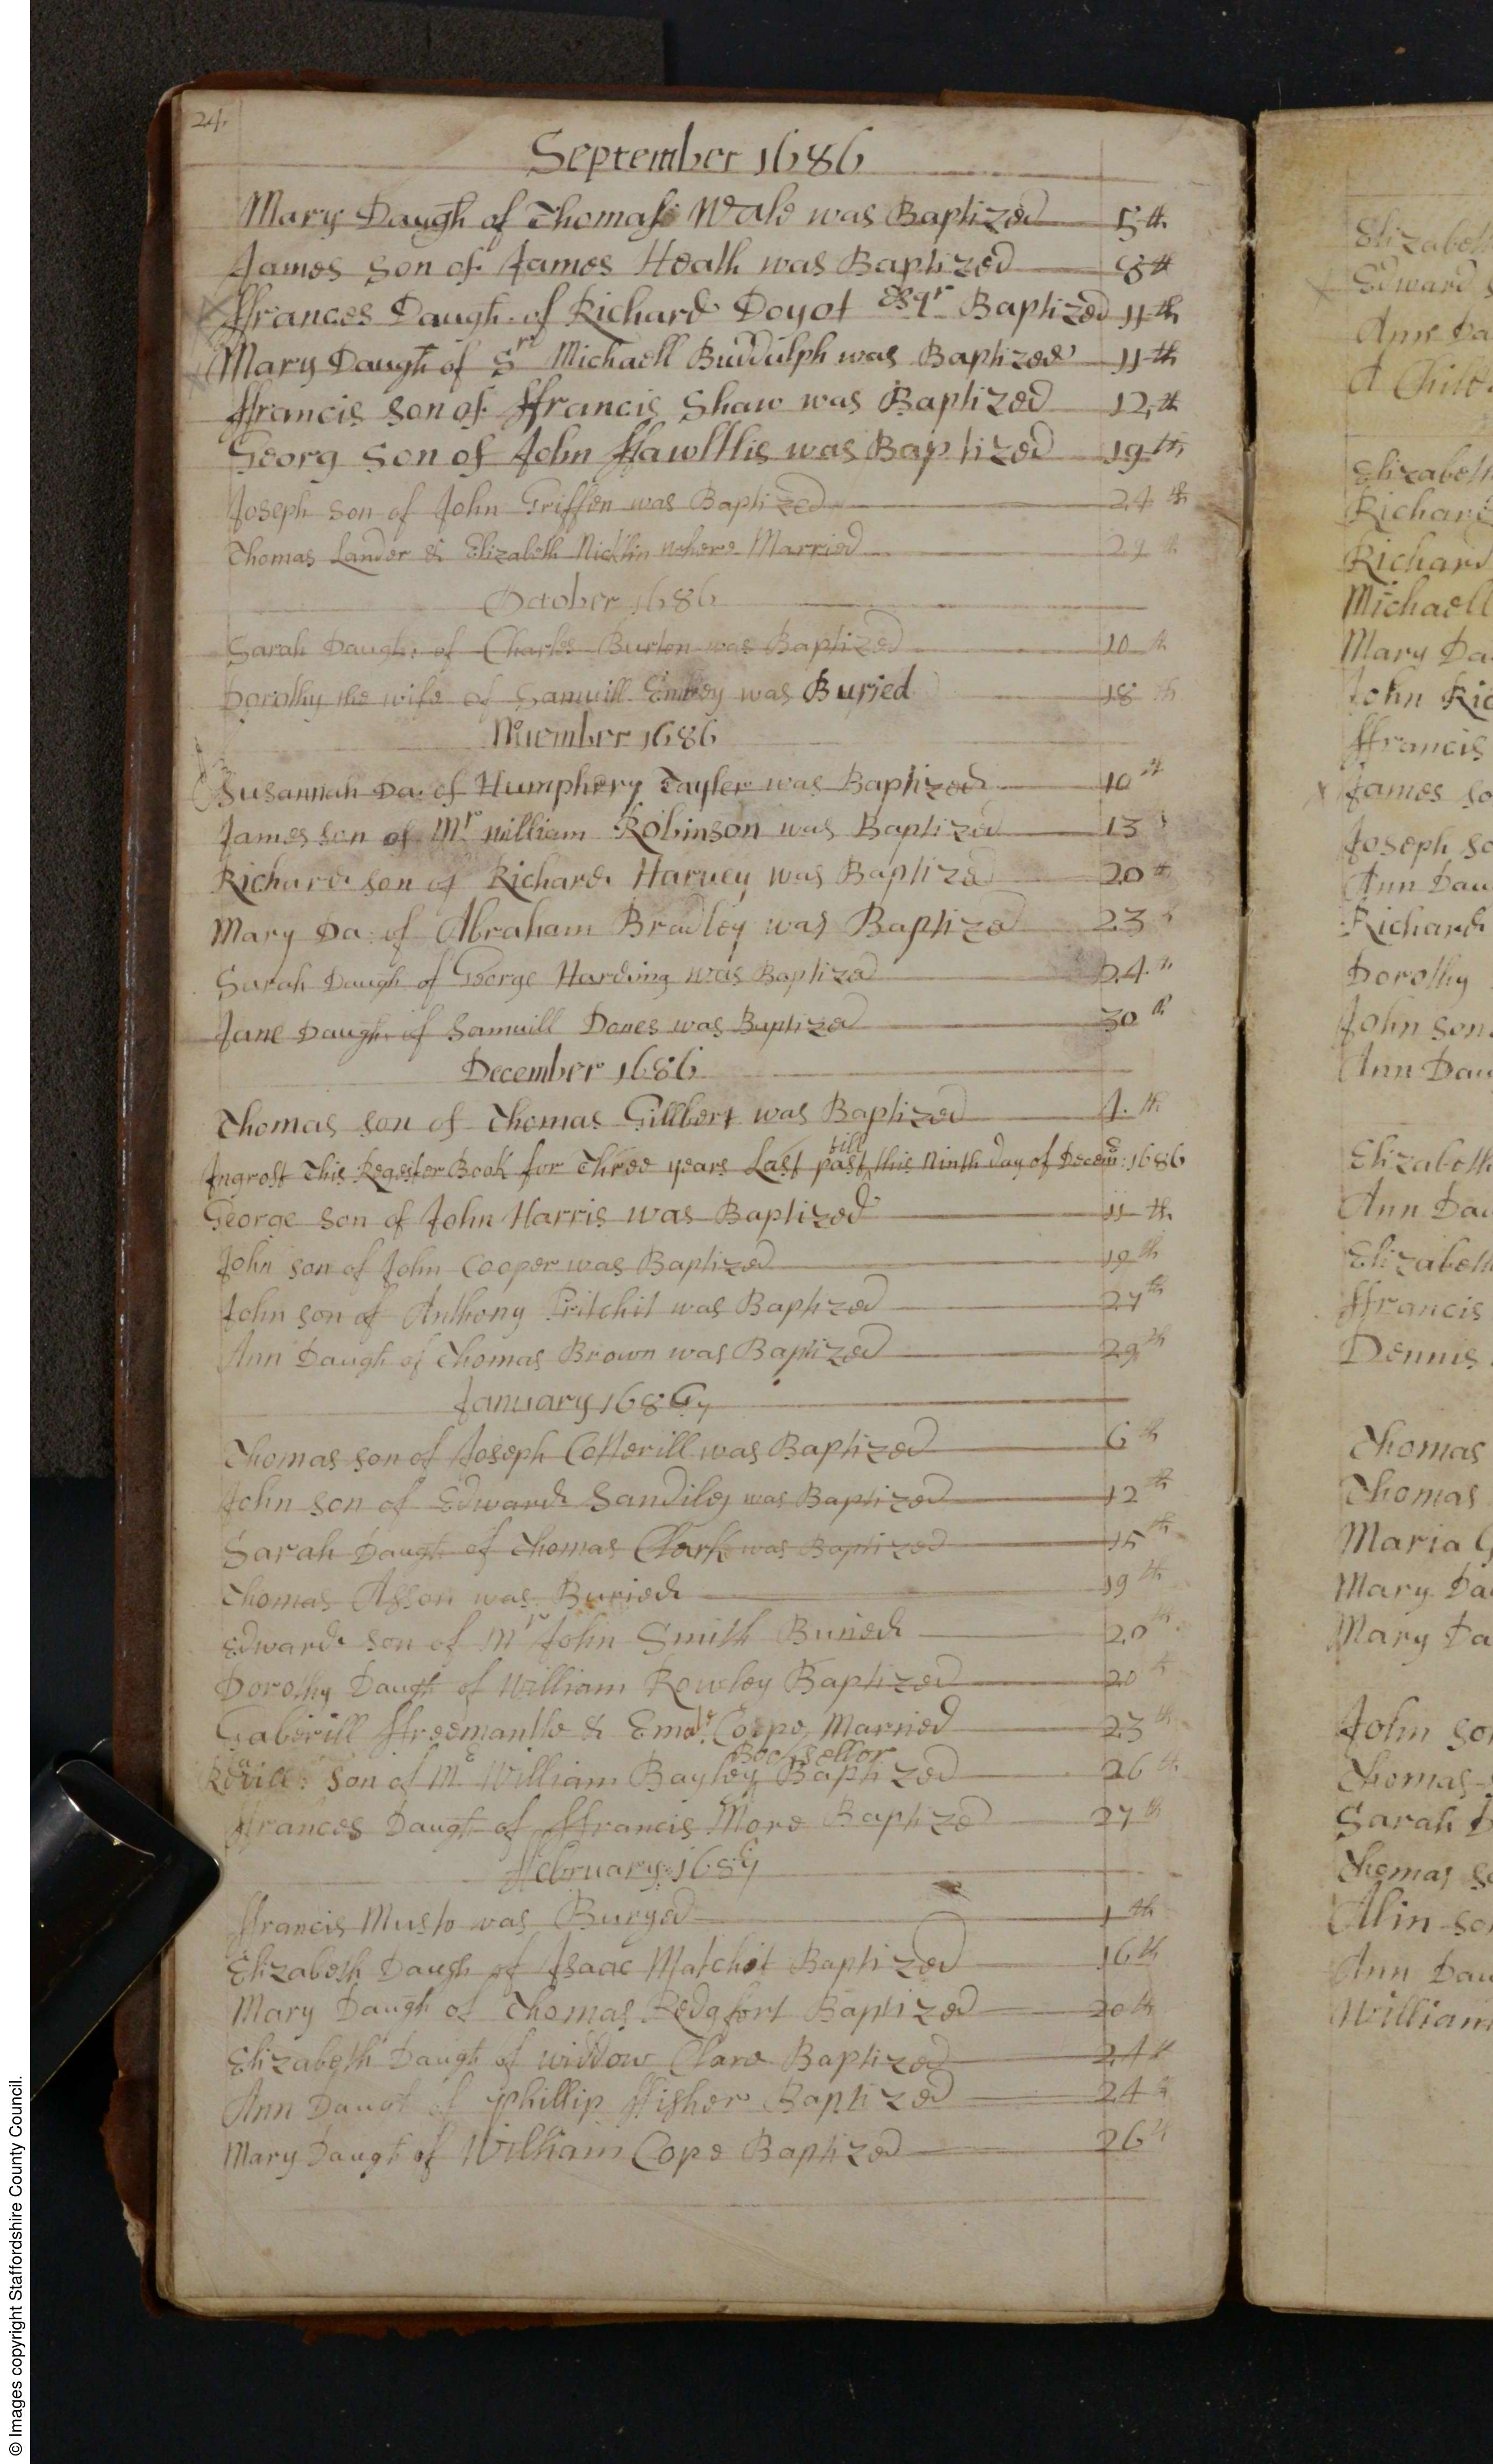 24.
September 1686
Mary Daugh of Thomas Wale was Baptized 5th
James son of James Heath was Baptized 8th
ffrances Daugh. of Richard Doyot Esqr Baptized 11th
Mary Daugh of Sr Michaell Buddulph was Baptized 11th
ffrancis son of ffrancis Shaw was Baptized 12th
Georg son of John was Baptized 19th
Joseph son of John Griffen was Baptized 24th
Thomas Lander & Elizabeth Nicklin where Married
October 1686
Sarah Daugh: of Charles Burton was Baptized 10th
Dorothy the wife of Samuill was Buried 18th
Nouember 1686
Susannah Da: of Humphery Tayler was Baptized 10th
James son of Mr william Robinson was Baptized 13
Richard son of Richard Haruey was Baptized 20th
Mary Da: of Abraham Bradley was Baptized 23
Sarah Daugh of George Harding was Baptized 24th
Jane Daugh: of Samuill Dones was Baptized 30th
December 1686
Thomas son of Thomas Gillbert was Baptized 4.th
till
Ingrost This Regester Book for Three years Last past this Ninth day of Decem: 1686
George son of John Harris was Baptized 11th
John son of John Cooper was Baptized 19th
John son of Anthony Pritchit was Baptized 27th
Ann Daugh of Thomas Brown was Baptized 29th
January 1686/7
Thomas son of Joseph Cotterill was Baptized 6th
John son of Edward Sandiley was Baptized 12th
Sarah Daugh of Thomas Clark was Baptized 15th
Thomas Asson was Buried 19th
Edward son of Mr John Smith Buried 20th
Dorothy Daugh of William Rowley Baptized 20th
Gaberill ffreemantle & Married 23th
Booksellor
son of Mr William Bayley Baptized 26th
ffrances Daugh of ffrancis More Baptized 27th
ffebruary: 1687
ffrancis Musto was Buryed 1th
Elizabeth Daugh of Isaac Matchit Baptized 16th
Mary Daugh of Thomas Redgfort Baptized 20th
Elizabeth Daugh of widdow Clare Baptized 24th
Ann Daugh of Phillip ffisher Baptized 24th
Mary Daugh of William Cope Baptized 26th
Elizabeth
Edward
Ann Da
A Child
Elizabeth
Richard
Richard
Michaell
Mary Da
John Ric
ffrancis
James so
Joseph so
Ann Dau
Richard
Dorothy
John son
Ann Dau
Elizabeth
Ann Dau
Elizabeth
ffrancis
Dennis
Thomas
Thomas
Maria
Mary Da
Mary Da
John son
Thomas
Sarah D
Thomas so
Alin so
Ann Dau
William
© Images copyright Staffordshire County Council.